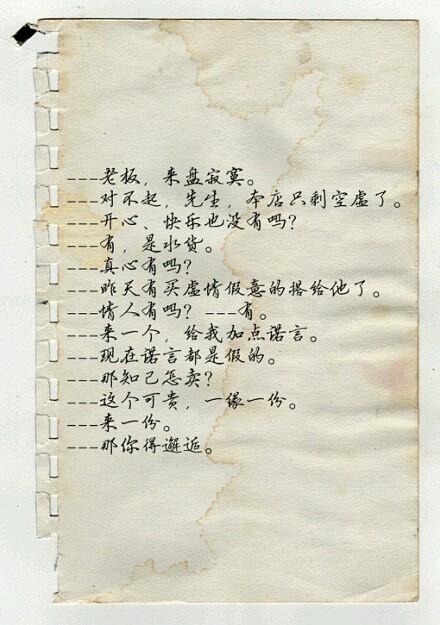 ---老板，来盘寂寞。
---对不起，先生，本店只剩空虚了。
---开心、快乐也没有吗？
---有，是水货。
---真心有吗？
---昨天有买虚情假意的搭给他了。
---情人有吗？ ---有。
---来一个，给我加点诺言。
---现在诺言都是假的。
---那知己怎卖？
---这个可贵，一缘一份。
---来一份。
---那你得邂逅。